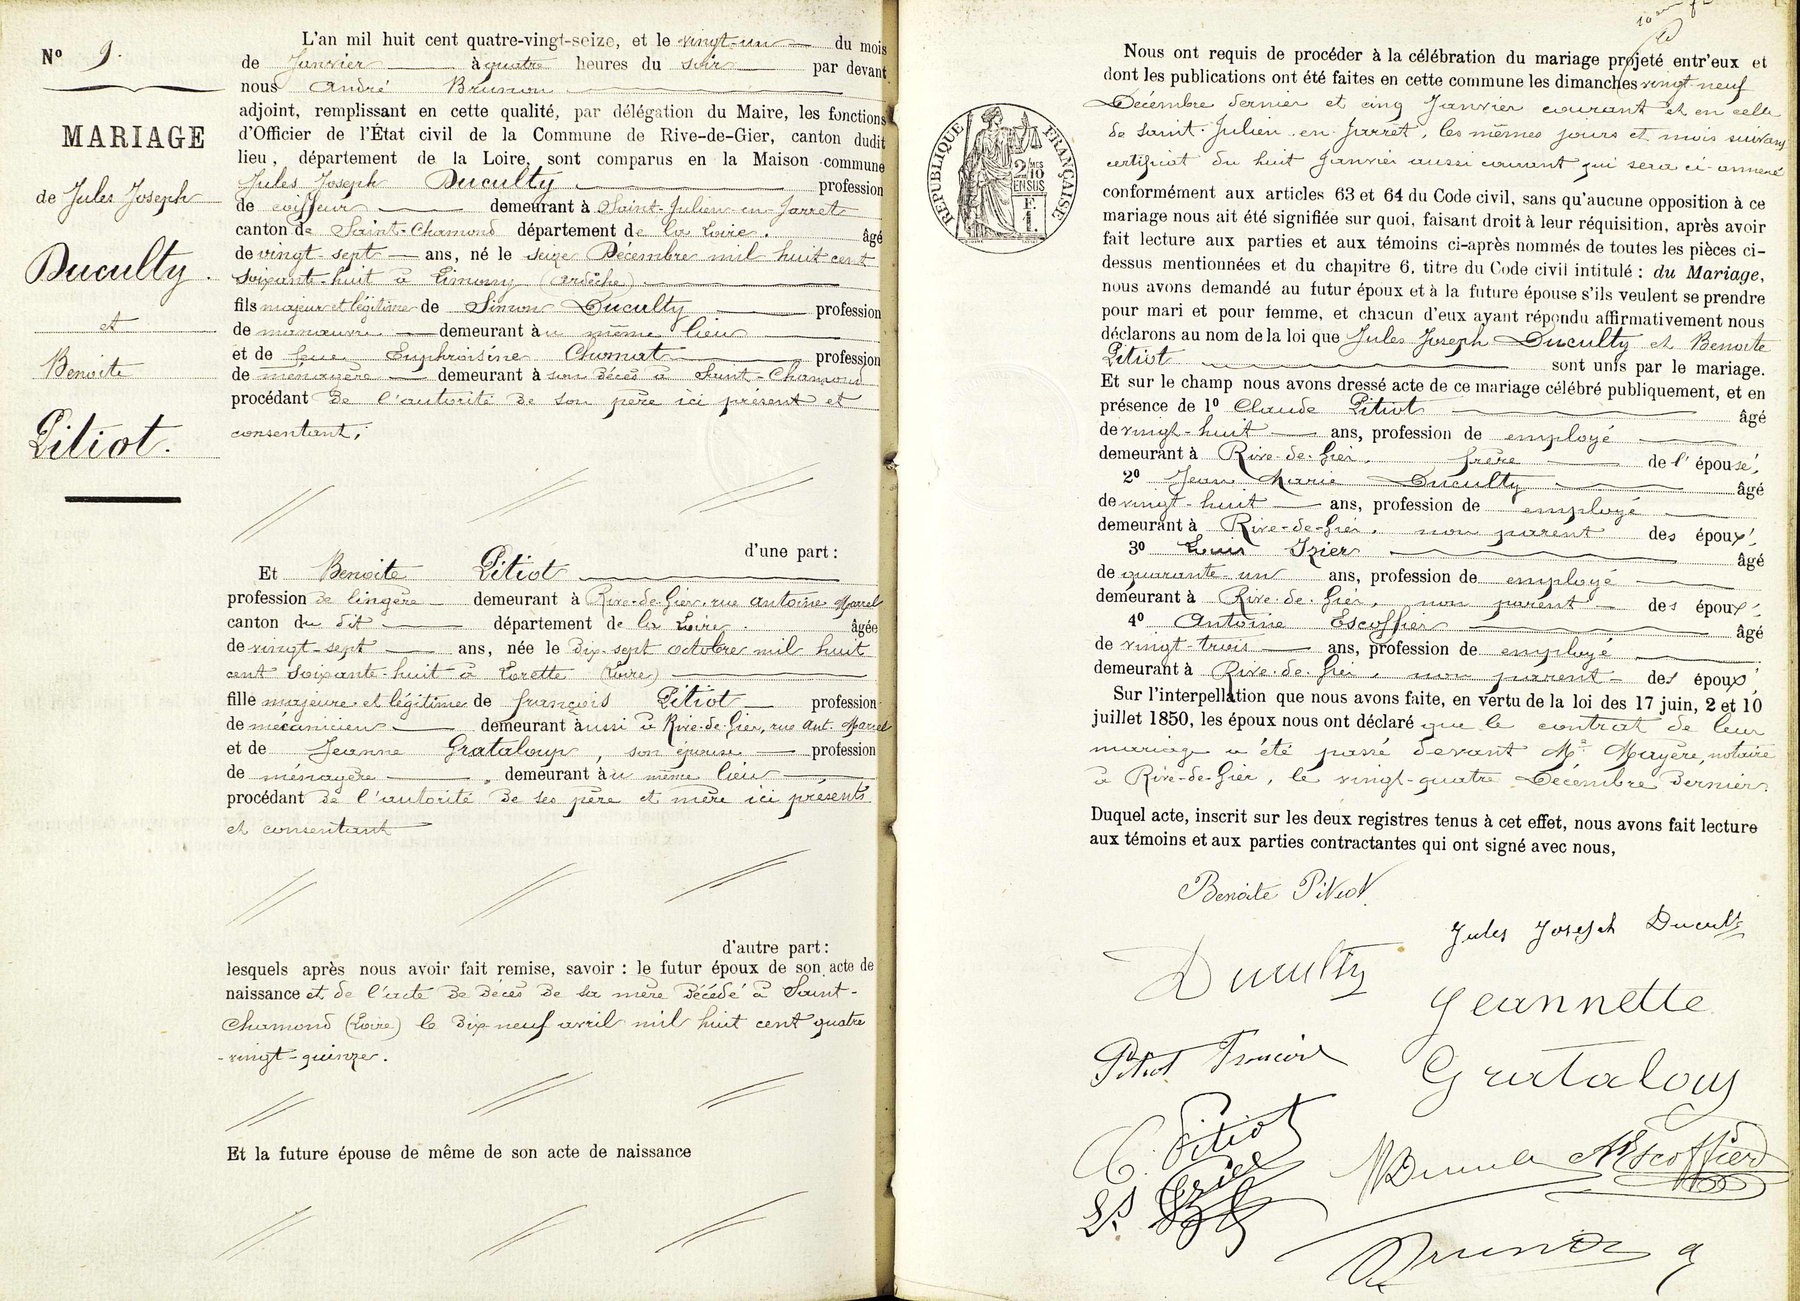 Nº 9.
MARIAGE
de Jules Joseph
Duculty.
et
Benoite
Pitiot.
L'an mil huit cent quatre-vingt-seize, et le vingt-un du mois
de Janvier à quatre heures du soir par devant
nous André Brunon
adjoint, remplissant en cette qualité, par délégation du Maire, les fonctions
d'Officier de l'État civil de la Commune de Rive-de-Gier, canton dudit
lieu, département de la Loire, sont comparus en la Maison commune
Jules Joseph Duculty profession
de coiffeur demeurant à Saint-Julien-en-Jarret
canton de Saint-Chamond département de la Loire. âgé
de vingt-sept ans, né le seize Décembre mil huit cent
soixante-huit à Limony (Ardèche)
fils majeur et légitime de Simon Duculty profession
de manœuvre demeurant au même lieu
et de feue Euphroisine Chomat profession
de ménagère demeurant à son décès à Saint-Chamond
procédant de l'autorité de son père ici présent et
consentant;
d'une part :
Et Benoite Pitiot
profession de lingère demeurant à Rive-de-Gier, rue Antoine Marrel
canton du dit département de la Loire. âgée
de vingt-sept ans, née le dix-sept octobre mil huit
cent soixante-huit à Lorette (Loire)
fille majeure et légitime de françois Pitiot profession
de mécanicien demeurant aussi à Rive-de-Gier, rue Ant. Marrel
et de Jeanne Grataloup, son épouse profession
de ménagère demeurant au même lieu
procédant de l'autorité de ses père et mère ici présents
et consentant
d'autre part :
lesquels après nous avoir fait remise, savoir : le futur époux de son acte de
naissance et de l'acte de décès de sa mère décédé à Saint-
Chamond (Loire) le dix-neuf avril mil huit cent quatre
-vingt-quinze.
Et la future épouse de même de son acte de naissance
Nous ont requis de procéder à la célébration du mariage projeté entr'eux et
dont les publications ont été faites en cette commune les dimanches vingt-neuf
Décembre dernier et cinq Janvier courant et en celle
de Saint-Julien-en-Jarret, les mêmes jours et mois suivant
certificat du huit Janvier aussi courant qui sera ci-annexé
RÉPUBLIQUE FRANÇAISE
2/10
EN SUS
conformément aux articles 63 et 64 du Code civil, sans qu'aucune opposition à ce
mariage nous ait été signifiée sur quoi, faisant droit à leur réquisition, après avoir
fait lecture aux parties et aux témoins ci-après nommés de toutes les pièces ci-
dessus mentionnées et du chapitre 6, titre du Code civil intitulé : du Mariage,
nous avons demandé au futur époux et à la future épouse s'ils veulent se prendre
pour mari et pour femme, et chacun d'eux ayant répondu affirmativement nous
déclarons au nom de la loi que Jules Joseph Duculty et Benoite
Pitiot sont unis par le mariage.
Et sur le champ nous avons dressé acte de ce mariage célébré publiquement, et en
présence de 1º Claude Pitiot âgé
de vingt-huit ans, profession de employé
demeurant à Rive-de-Gier, frère de l'épouse,
2º Jean Marie Duculty âgé
de vingt-huit ans, profession de employé
demeurant à Rive-de-Gier, non parent des époux,
3º Louis Izier âgé
de quarante-un ans, profession de employé
demeurant à Rive-de-Gier, non parent des époux,
4º Antoine Escoffier âgé
de vingt-trois ans, profession de employé
demeurant à Rive-de-Gier, non parent des époux,
Sur l'interpellation que nous avons faite, en vertu de la loi des 17 juin, 2 et 10
juillet 1850, les époux nous ont déclaré que le contrat de leur
mariage a été passé devant Me Mayère, notaire
à Rive-de-Gier, le vingt-quatre Décembre dernier.
Duquel acte, inscrit sur les deux registres tenus à cet effet, nous avons fait lecture
aux témoins et aux parties contractantes qui ont signé avec nous,
Benoite Pitiot
Jules Joseph Duculty
Duculty
Jeannette
Pitiot Francois
Grataloup
C. Pitiot
Escoffier
Izier
Brunon